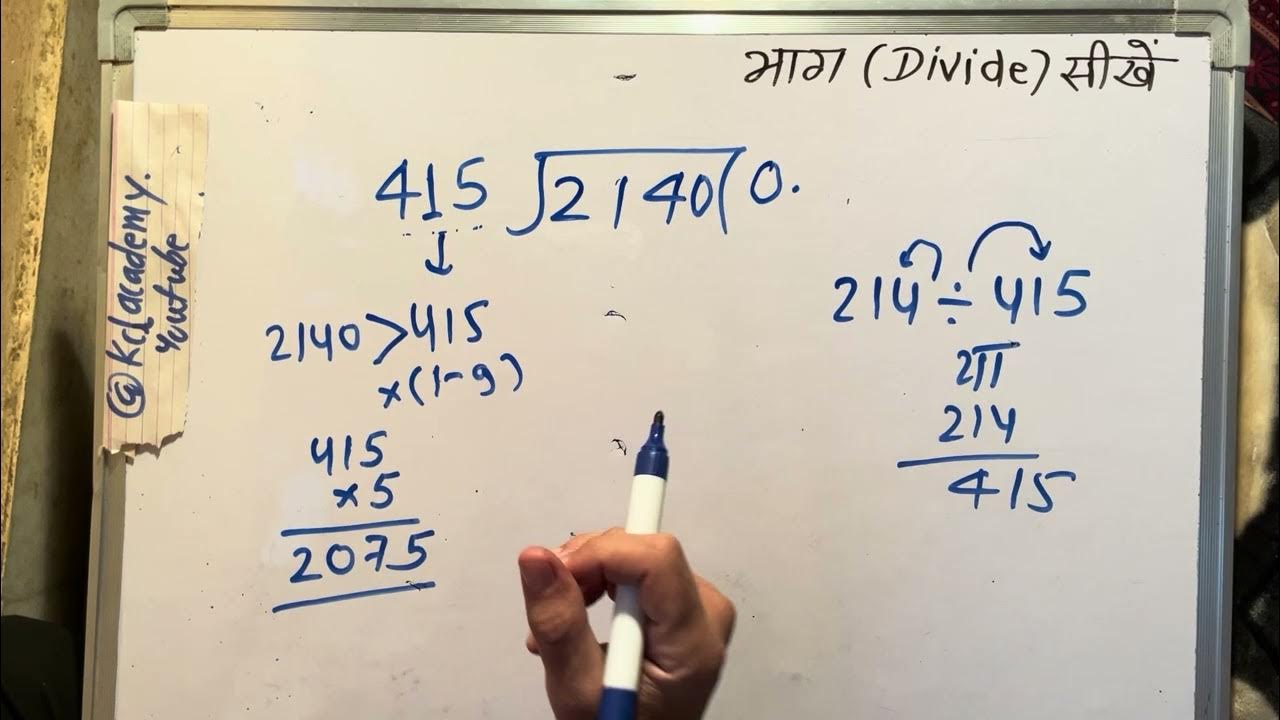 भाग (Divide) सीखें
@Kclacademy.
Youtube
415 ⟌2140(0.
↓
2140>415
×(1-9)
415
×5
2075
214÷415
वा
214
415